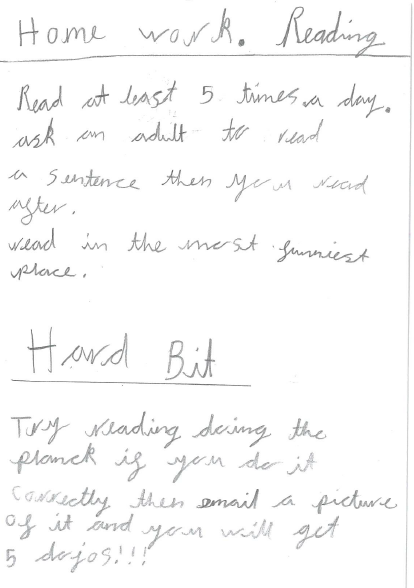 Home work. Reading
Read at least 5 times a day.
ask an adult to read
a sentence then you read
after.
read in the most funniest
place.
Hard Bit
Try reading doing the
planck if you do it
correctly then email a picture
of it and you will get
5 dojos!!!